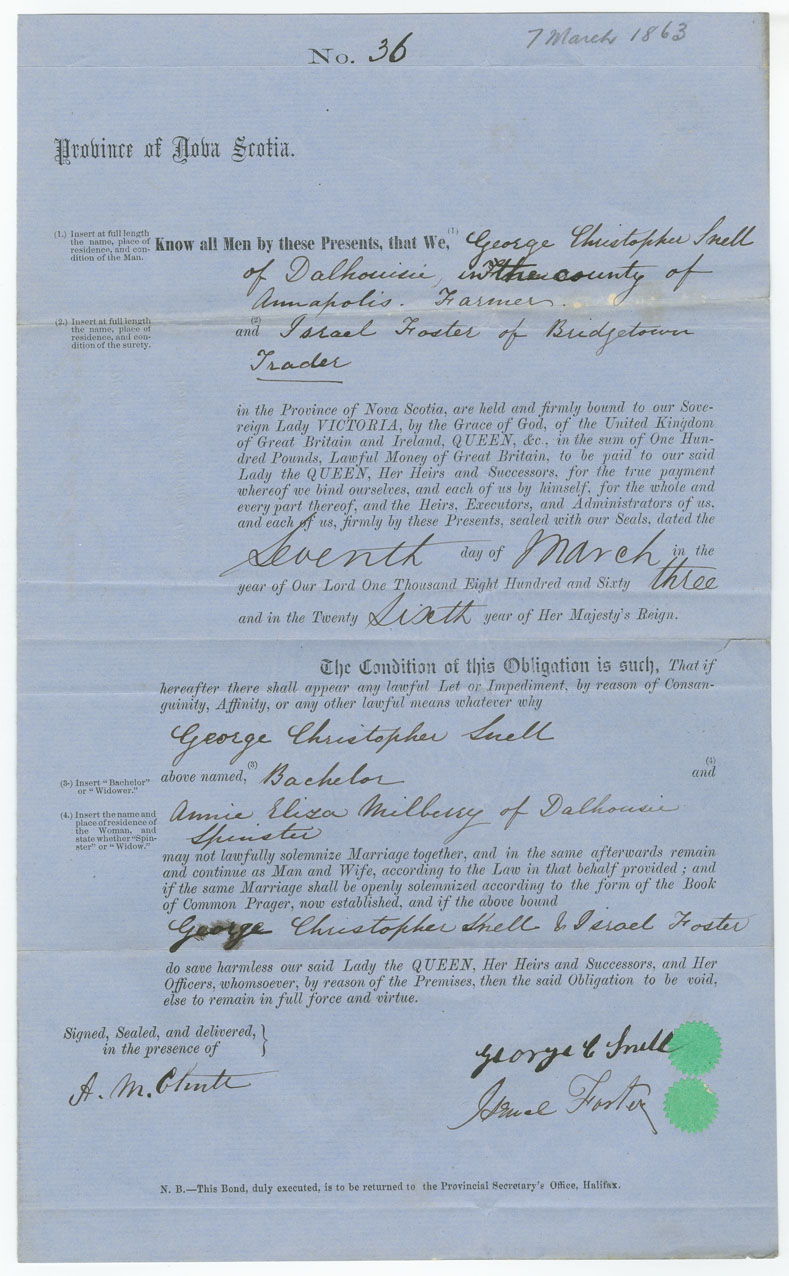 No. 36
7 March 1863
Province of Nova Scotia.
(1.) Insert at full length
the name, place of
residence, and con-
dition of the Man.
Know all Men by these Presents, that We, (1) George Christopher Snell
of Dalhousie, in the county of
Annapolis. Farmer.
(2.) Insert at full length
the name, place of
residence, and con-
dition of the surety.
and (2) Israel Foster of Bridgetown
Trader
in the Province of Nova Scotia, are held and firmly bound to our Sove-
reign Lady VICTORIA, by the Grace of God, of the United Kingdom
of Great Britain and Ireland, QUEEN, &c., in the sum of One Hun-
dred Pounds, Lawful Money of Great Britain, to be paid to our said
Lady the QUEEN, Her Heirs and Successors, for the true payment
whereof we bind ourselves, and each of us by himself, for the whole and
every part thereof, and the Heirs, Executors, and Administrators of us,
and each of us, firmly by these Presents, sealed with our Seals, dated the
Seventh day of March in the
year of Our Lord One Thousand Eight Hundred and Sixty three
and in the Twenty Sixth year of Her Majesty's Reign.
The Condition of this Obligation is such, That if
hereafter there shall appear any lawful Let or Impediment, by reason of Consan-
guinity, Affinity, or any other lawful means whatever why
George Christopher Snell
(3.) Insert "Bachelor"
or "Widower."
above named, (3) Bachelor and (4)
(4.) Insert the name and
place of residence of
the Woman, and
state whether "Spin-
ster" or "Widow."
Annie Eliza Milberry of Dalhousie
Spinster
may not lawfully solemnize Marriage together, and in the same afterwards remain
and continue as Man and Wife, according to the Law in that behalf provided ; and
if the same Marriage shall be openly solemnized according to the form of the Book
of Common Prager, now established, and if the above bound
George Christopher Snell & Israel Foster
do save harmless our said Lady the QUEEN, Her Heirs and Successors, and Her
Officers, whomsoever, by reason of the Premises, then the said Obligation to be void,
else to remain in full force and virtue.
Signed, Sealed, and delivered,
in the presence of
A. M.
George C Snell
Israel Foster
N. B.—This Bond, duly executed, is to be returned to the Provincial Secretary's Office, Halifax.